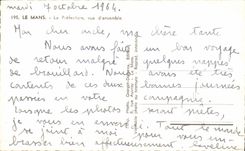 mardi 7 octobre 1964.
190. LE MANS. - La Préfecture, vue d'ensemble
Mon cher oncle, ma chère tante
Nous avons fait un bon voyage
de retour malgré quelques nappes
de brouillard. Nous avons été très
contents de ces deux bonnes journées
passées en votre compagnie.
les photos seront prêtes,
je vous en enverrai. Tout le monde
se joint à moi pour vous
embrasser bien affectueusement. Eveline